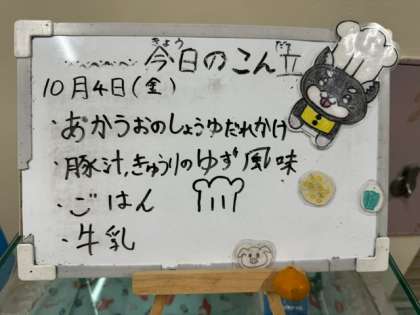 今日のこん立
きょう だて
10月4日(金)
・あかうおのしょうゆだれかけ
・豚汁,きゅうりのゆず風味
・ごはん
・牛乳